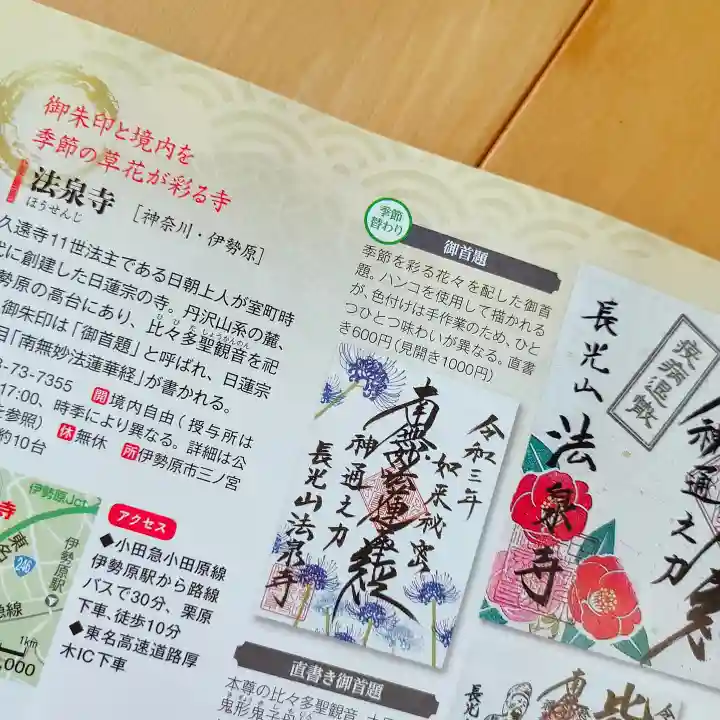 御朱印と境内を
季節の草花が彩る寺
法泉寺
ほうせんじ
［神奈川・伊勢原］
久遠寺11世法主である日朝上人が室町時
に創建した日蓮宗の寺。丹沢山系の麓、
勢原の高台にあり、比々多聖観音を祀
御朱印は「御首題」と呼ばれ、日蓮宗
目「南無妙法蓮華経」が書かれる。
-73-7355 開境内自由（授与所は
17:00、時季により異なる。詳細は公
参照）休無休 所伊勢原市三ノ宮
約10台
アクセス
◆小田急小田原線
伊勢原駅から路線
バスで30分、栗原
下車、徒歩10分
◆東名高速道路厚
木IC下車
伊勢原Jct
寺
東名
246
伊勢原駅
急線
1km
,000
季節
替わり
御首題
季節を彩る花々を配した御首
題。ハンコを使用して描かれる
が、色付けは手作業のため、ひと
つひとつ味わいが異なる。直書
き600円（見開き1000円）
令和三年
如来秘密
南無妙法蓮華経
神通之力
長光山法泉寺
疾病退散
神通之力
長光山
法泉寺
直書き御首題
本尊の比々多聖観音
鬼形鬼子母
長光
南